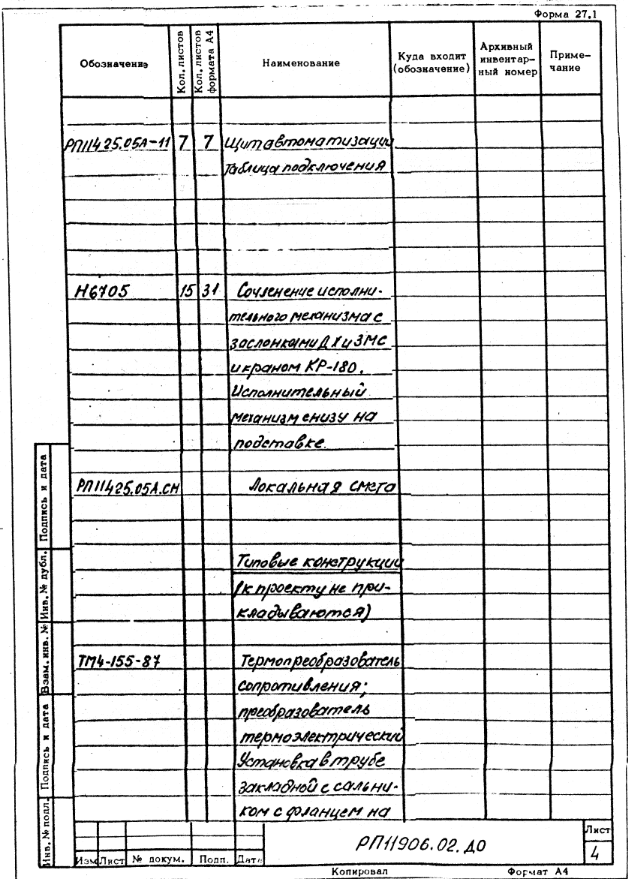 Форма 27.1
Обозначение
Кол. листов
Кол. листов формата А4
Наименование
Куда входит (обозначение)
Архивный инвентар-ный номер
Приме-чание
РП11425.05А-11 7 7 Щит автоматизации
Таблица подключения
Н6705 15 31 Сочленение исполни-
тельного механизма с
заслонками ДХ и ЗМС
и краном КР-180.
Исполнительный
механизм снизу на
подставке.
РП11425.05А.СМ Локальная смета
Типовые конструкции
(к проекту не при-
кладываются)
ТМ4-155-87 Термопреобразователь
сопротивления;
преобразователь
термоэлектрический
Установка в трубе
закладной с сальни-
ком с фланцем на
Инв. № подл. Подпись и дата Взам. инв. № Инв. № дубл. Подпись и дата
Изм Лист № докум. Подп. Дата
РП11906.02.ДО
Лист
4
Копировал Формат А4